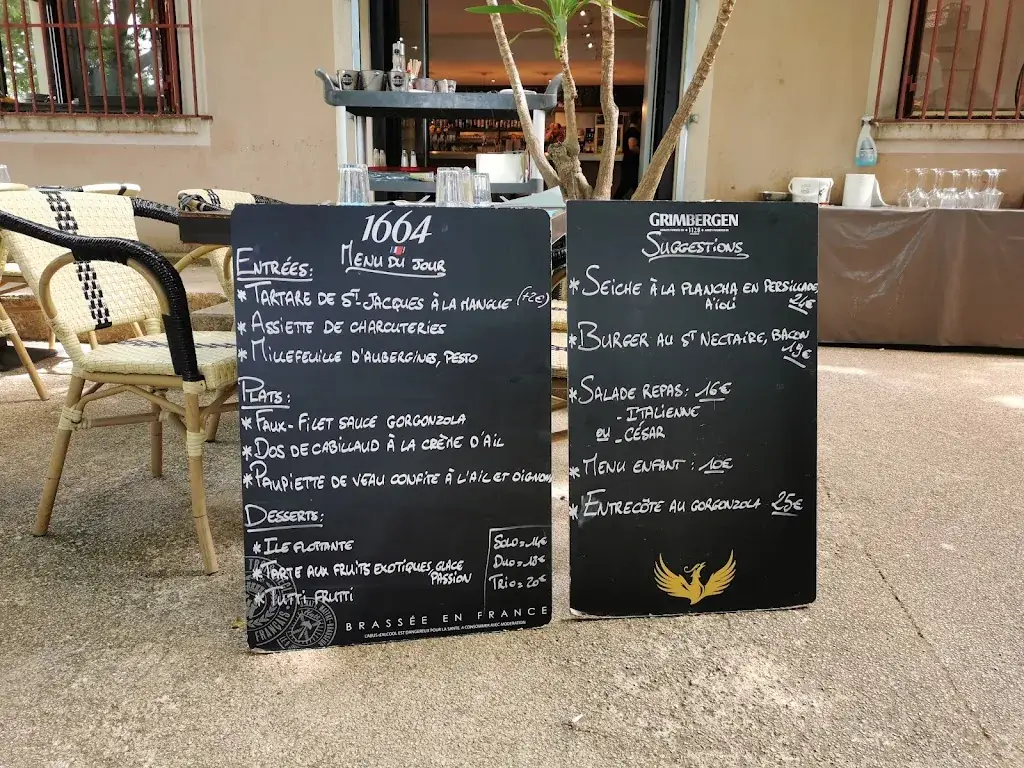 1664
MENU DU JOUR
ENTRÉES:
* TARTARE DE ST-JACQUES À LA MANGUE (+2€)
* ASSIETTE DE CHARCUTERIES
* MILLEFEUILLE D'AUBERGINES, PESTO
PLATS:
* FAUX-FILET SAUCE GORGONZOLA
* DOS DE CABILLAUD À LA CRÈME D'AIL
* PAUPIETTE DE VEAU CONFITE À L'AIL ET OIGNONS
DESSERTS:
* ILE FLOTTANTE
* TARTE AUX FRUITS EXOTIQUES, GLACE
PASSION
* TUTTI FRUTTI
SOLO = 14€
DUO = 18€
TRIO = 20€
BRASSÉE EN FRANCE
L'ABUS D'ALCOOL EST DANGEREUX POUR LA SANTÉ. À CONSOMMER AVEC MODÉRATION.
GRIMBERGEN
1128
SUGGESTIONS
* SEICHE À LA PLANCHA EN PERSILLADE
AÏOLI
24€
* BURGER AU ST NECTAIRE, BACON
19€
* SALADE REPAS: 16€
- ITALIENNE
OU - CÉSAR
* MENU ENFANT : 10€
* ENTRECÔTE AU GORGONZOLA 25€